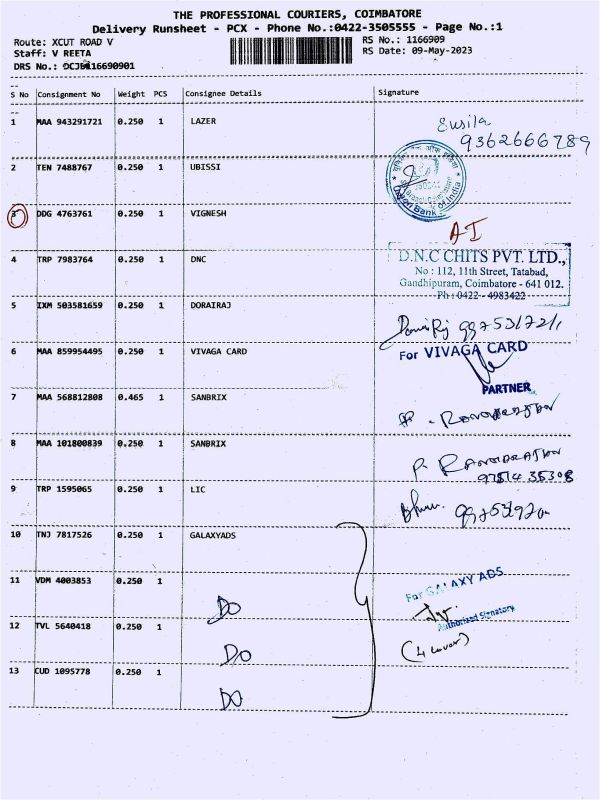 THE PROFESSIONAL COURIERS, COIMBATORE
Delivery Runsheet - PCX - Phone No.:0422-3505555 - Page No.:1
Route: XCUT ROAD V
RS No.: 1166909
Staff: V REETA
RS Date: 09-May-2023
DRS No.: 16690901
S No Consignment No Weight PCS Consignee Details Signature
1 MAA 943291721 0.250 1 LAZER
Susila
9362666789
2 TEN 7488767 0.250 1 UBISSI
Union Bank of India
3 DDG 4763761 0.250 1 VIGNESH
AI
4 TRP 7983764 0.250 1 DNC
D.N.C CHITS PVT. LTD.,
No : 112, 11th Street, Tatabad,
Gandhipuram, Coimbatore - 641 012.
Ph : 0422 - 4983422
5 IXM 503581659 0.250 1 DORAIRAJ
6 MAA 859954495 0.250 1 VIVAGA CARD
For VIVAGA CARD
PARTNER
7 MAA 568812808 0.465 1 SANBRIX
8 MAA 101800839 0.250 1 SANBRIX
9 TRP 1595065 0.250 1 LIC
10 TNJ 7817526 0.250 1 GALAXYADS
11 VDM 4003853 0.250 1
DO
For GALAXY ADS
Authorised Signatory
12 TVL 5640418 0.250 1
DO
(4 cover)
13 CUD 1095778 0.250 1
DO